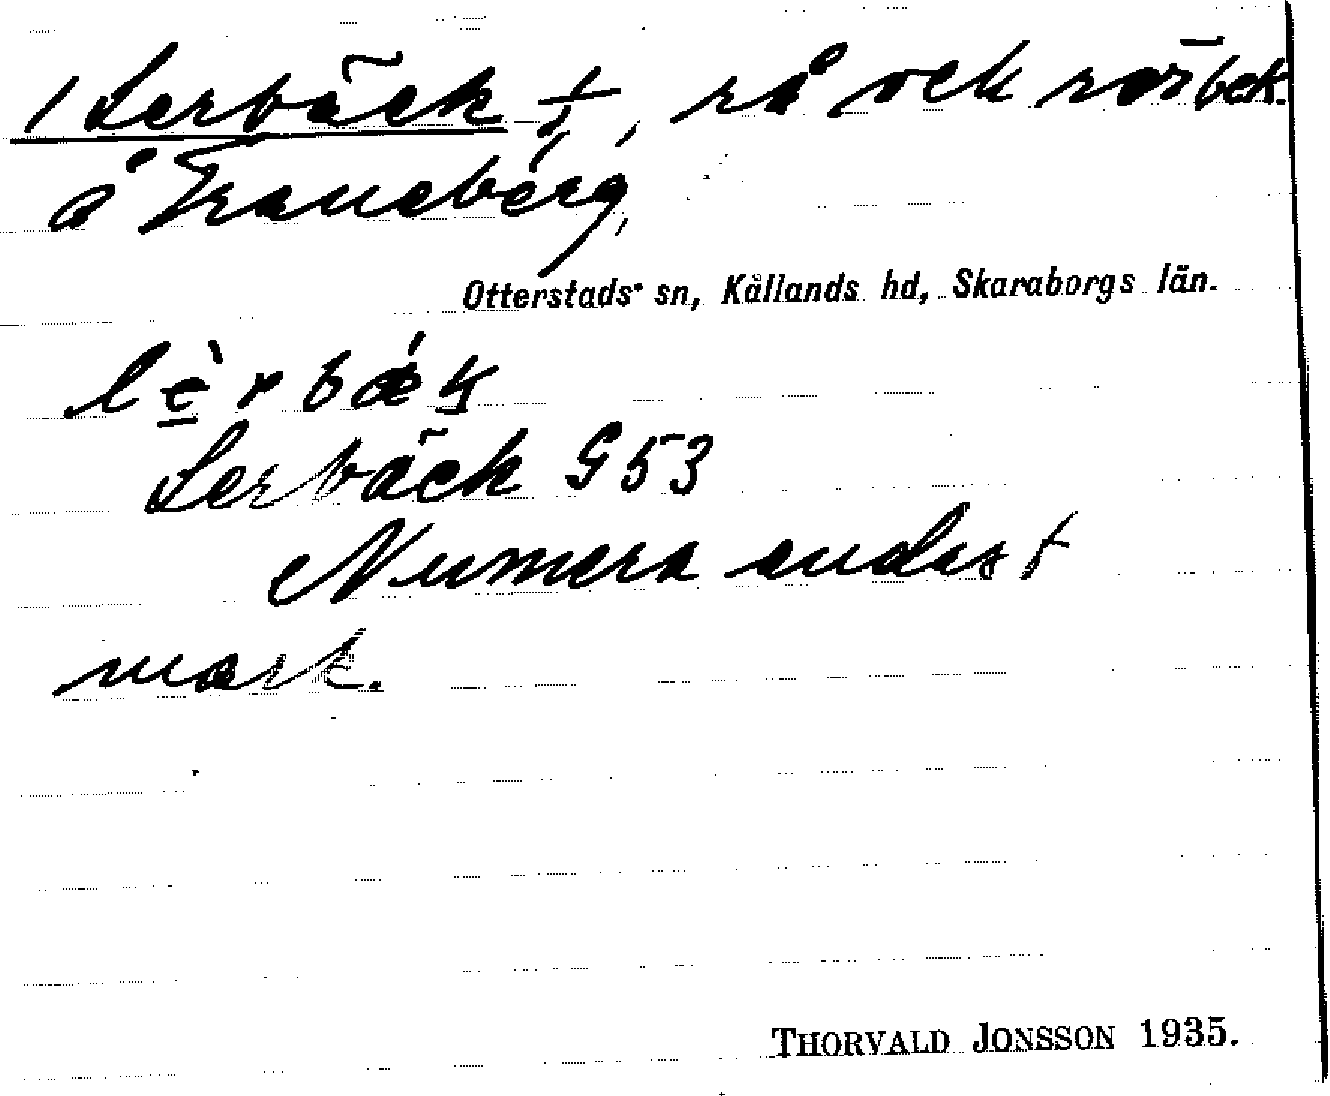 1 Lerbäck †, rå och rör bek.
å Traneberg,
Otterstads sn, Kållands hd, Skaraborgs län.
lè̱rbǽk
Lerbäck G 53
Numera endast
mark.
THORVALD JONSSON 1935.